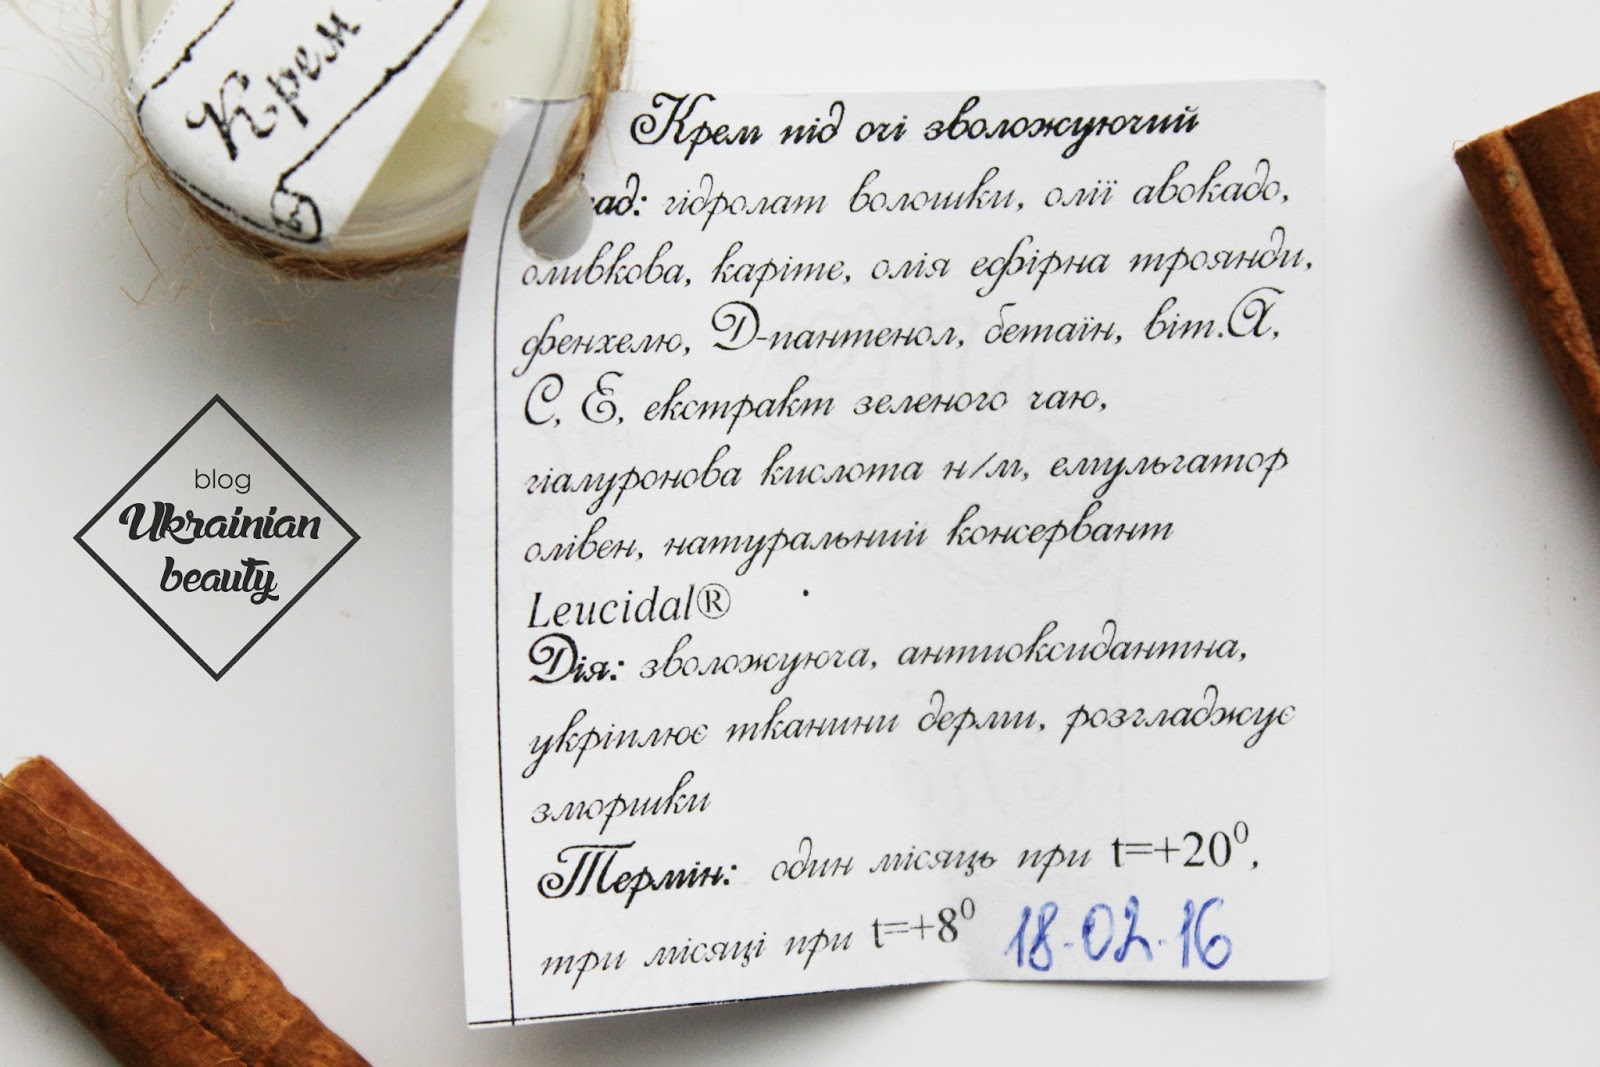 Крем
Крем під очі зволожуючий
гідролат волошки, олії авокадо,
оливкова, каріте, олія ефірна троянди,
фенхелю, Д-пантенол, бетаїн, віт.А,
С, Е, екстракт зеленого чаю,
гіалуронова кислота н/м, емульгатор
олівен, натуральний консервант
Leucidal®
Дія: зволожуюча, антиоксидантна,
укріплює тканини дерми, розгладжує
зморшки
Термін: один місяць при t=+20⁰,
три місяці при t=+8⁰ 18.02.16
blog
Ukrainian
beauty